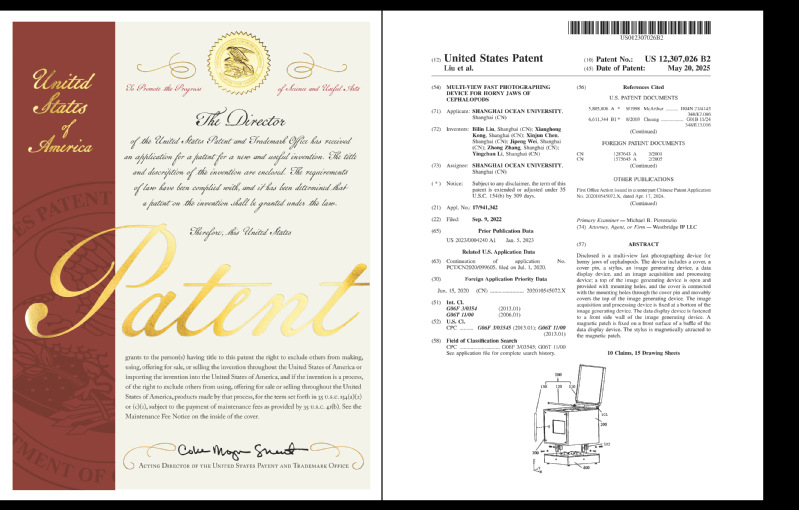 United
States
of
America
To Promote the Progress
of Science and Useful Arts
The Director
of the United States Patent and Trademark Office has received
an application for a patent for a new and useful invention. The title
and description of the invention are enclosed. The requirements
of law have been complied with, and it has been determined that
a patent on the invention shall be granted under the law.
Therefore, this United States
Patent
grants to the person(s) having title to this patent the right to exclude others from making,
using, offering for sale, or selling the invention throughout the United States of America or
importing the invention into the United States of America, and if the invention is a process,
of the right to exclude others from using, offering for sale or selling throughout the United
States of America, products made by that process, for the term set forth in 35 U.S.C. 154(a)(2)
or (c)(1), subject to the payment of maintenance fees as provided by 35 U.S.C. 41(b). See the
Maintenance Fee Notice on the inside of the cover.
Acting Director of the United States Patent and Trademark Office
US012307026B2
(12) United States Patent
Liu et al.
(10) Patent No.: US 12,307,026 B2
(45) Date of Patent: May 20, 2025
(54) MULTI-VIEW FAST PHOTOGRAPHING
DEVICE FOR HORNY JAWS OF
CEPHALOPODS
(71) Applicant: SHANGHAI OCEAN UNIVERSITY,
Shanghai (CN)
(72) Inventors: Bilin Liu, Shanghai (CN); Xianghong
Kong, Shanghai (CN); Xinjun Chen,
Shanghai (CN); Jipeng Wei, Shanghai
(CN); Zhong Zhang, Shanghai (CN);
Yingchun Li, Shanghai (CN)
(73) Assignee: SHANGHAI OCEAN UNIVERSITY,
Shanghai (CN)
( * ) Notice: Subject to any disclaimer, the term of this
patent is extended or adjusted under 35
U.S.C. 154(b) by 309 days.
(21) Appl. No.: 17/941,342
(22) Filed: Sep. 9, 2022
(65) Prior Publication Data
US 2023/0004240 A1 Jan. 5, 2023
Related U.S. Application Data
(63) Continuation of application No.
PCT/CN2020/099605, filed on Jul. 1, 2020.
(30) Foreign Application Priority Data
Jun. 15, 2020 (CN) 202010545072.X
(51) Int. Cl.
G06F 3/0354 (2013.01)
G06T 11/00 (2006.01)
(52) U.S. Cl.
CPC G06F 3/03545 (2013.01); G06T 11/00
(2013.01)
(58) Field of Classification Search
CPC G06F 3/03545; G06T 11/00
See application file for complete search history.
(56) References Cited
U.S. PATENT DOCUMENTS
(Continued)
FOREIGN PATENT DOCUMENTS
(Continued)
OTHER PUBLICATIONS
First Office Action issued in counterpart Chinese Patent Application
No. 202010545072.X, dated Apr. 17, 2024.
(Continued)
Primary Examiner — Michael R.
(74) Attorney, Agent, or Firm — Westbridge IP LLC
(57) ABSTRACT
Disclosed is a multi-view fast photographing device for
horny jaws of cephalopods. The device includes a cover, a
cover pin, a stylus, an image generating device, a data
display device, and an image acquisition and processing
device; a top of the image generating device is open and
provided with mounting holes, and the cover is connected
with the mounting holes through the cover pin and movably
covers the top of the image generating device. The image
acquisition and processing device is fixed at a bottom of the
image generating device. The data display device is fastened
to a front side wall of the image generating device. A
magnetic patch is fixed on a front surface of a baffle of the
data display device. The stylus is magnetically attracted to
the magnetic patch.
10 Claims, 15 Drawing Sheets